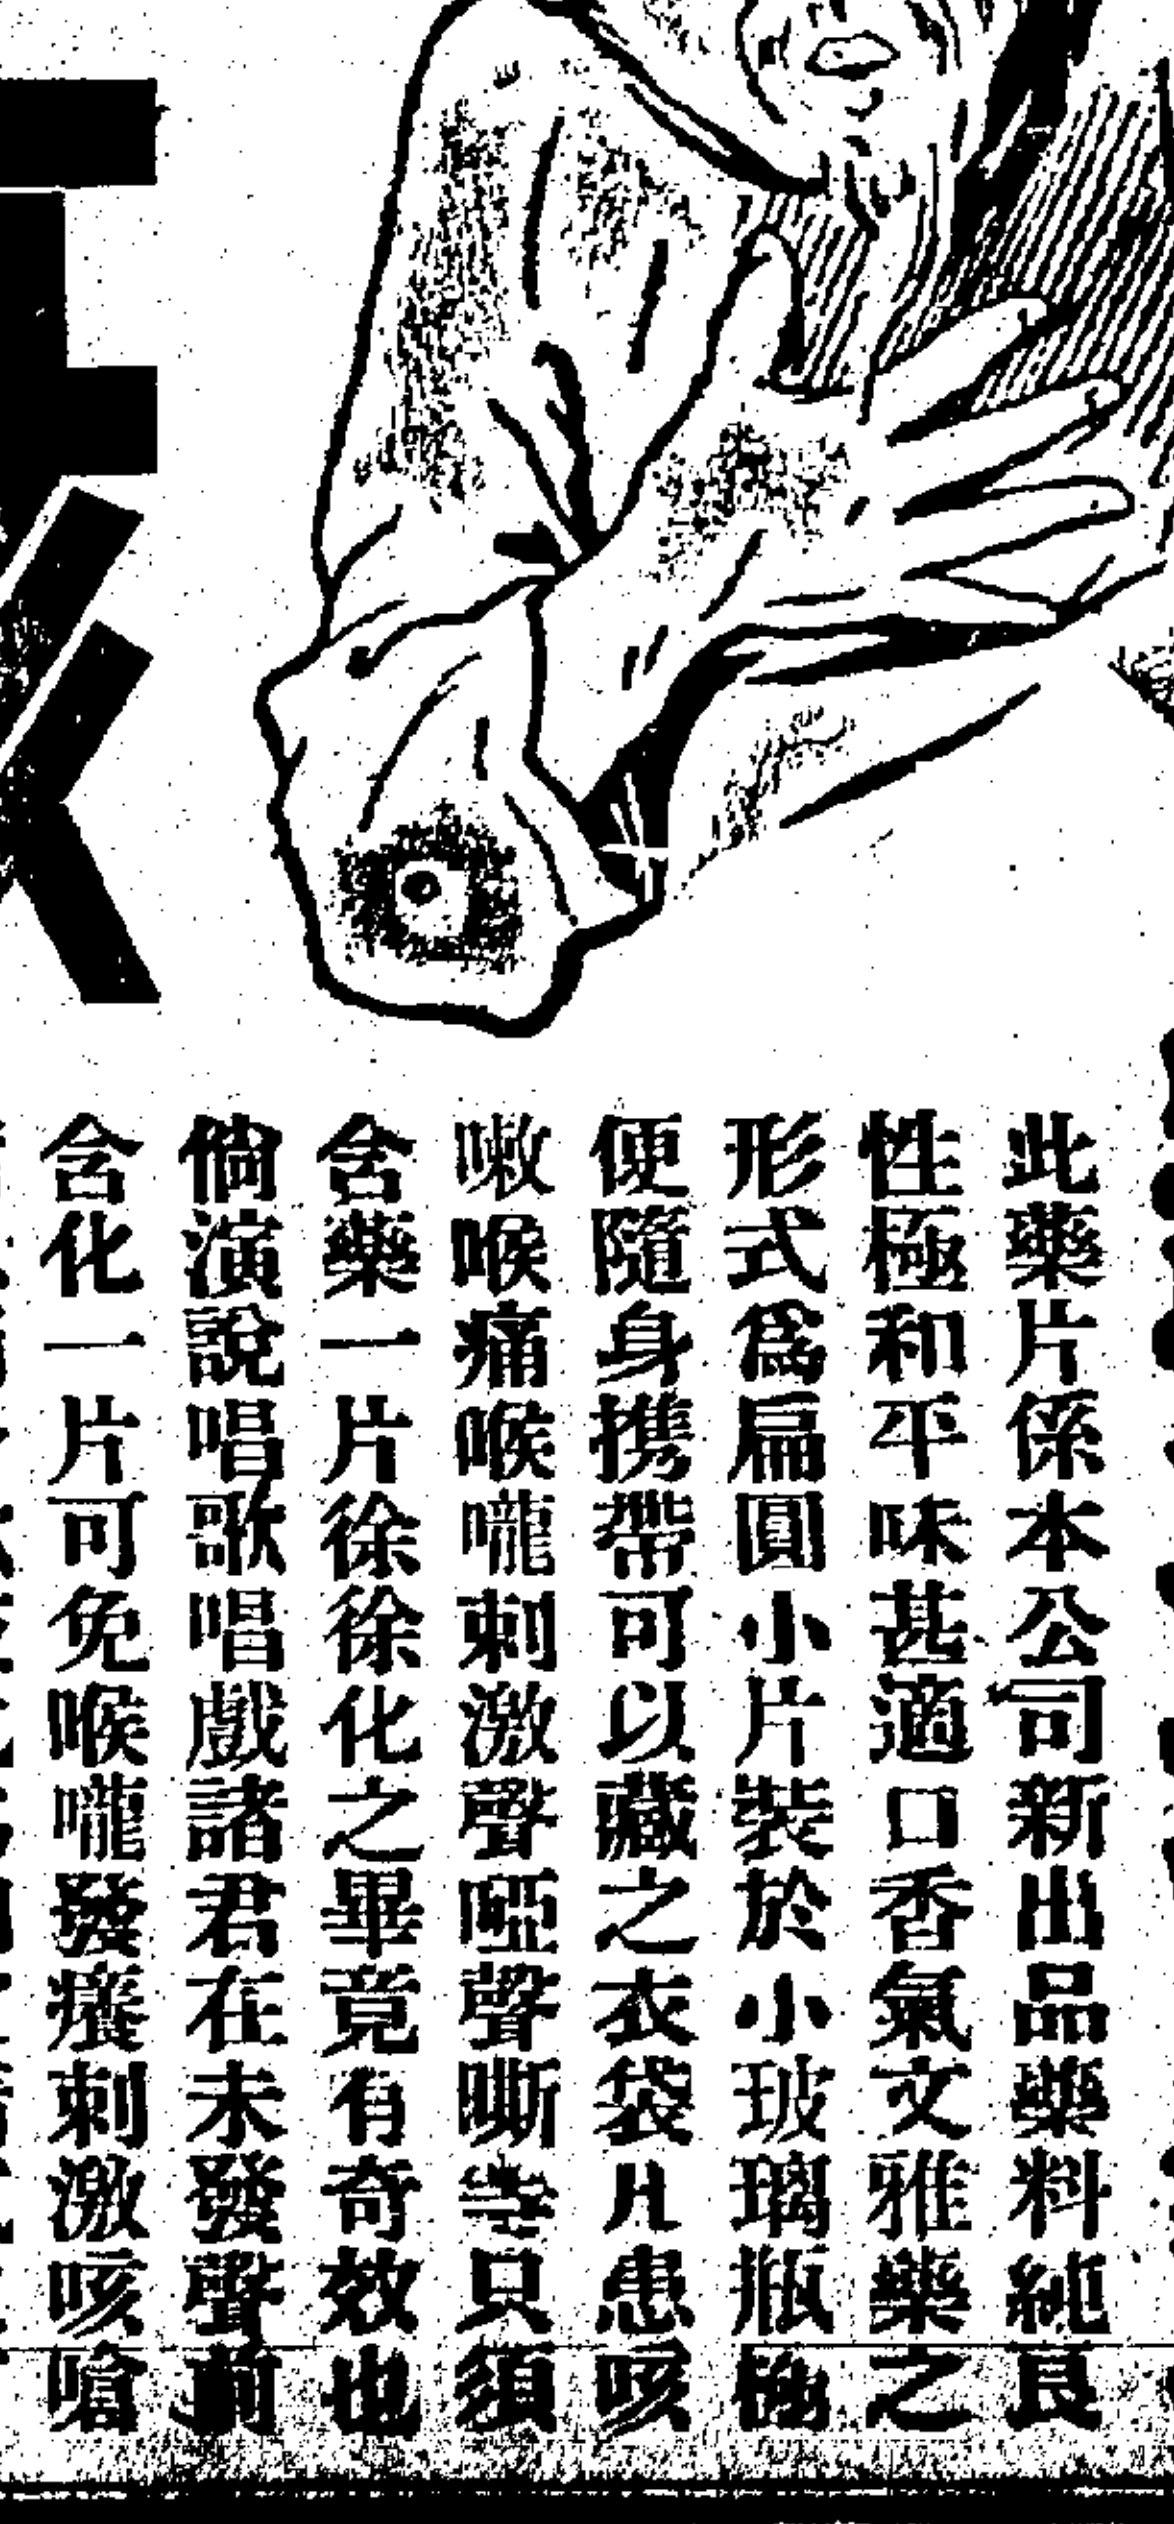 此藥片係本公司新出品藥料純良
性極和平味甚適口香氣文雅藥之
形式爲扁圓小片裝於小玻璃瓶極
便隨身携帶可以藏之衣袋凡患咳
嗽喉痛喉嚨刺激聲啞聲嘶等只須
含藥一片徐徐化之畢竟有奇效也
倘演說唱歌唱戲諸君在未發聲前
含化一片可免喉嚨發癢刺激咳嗆